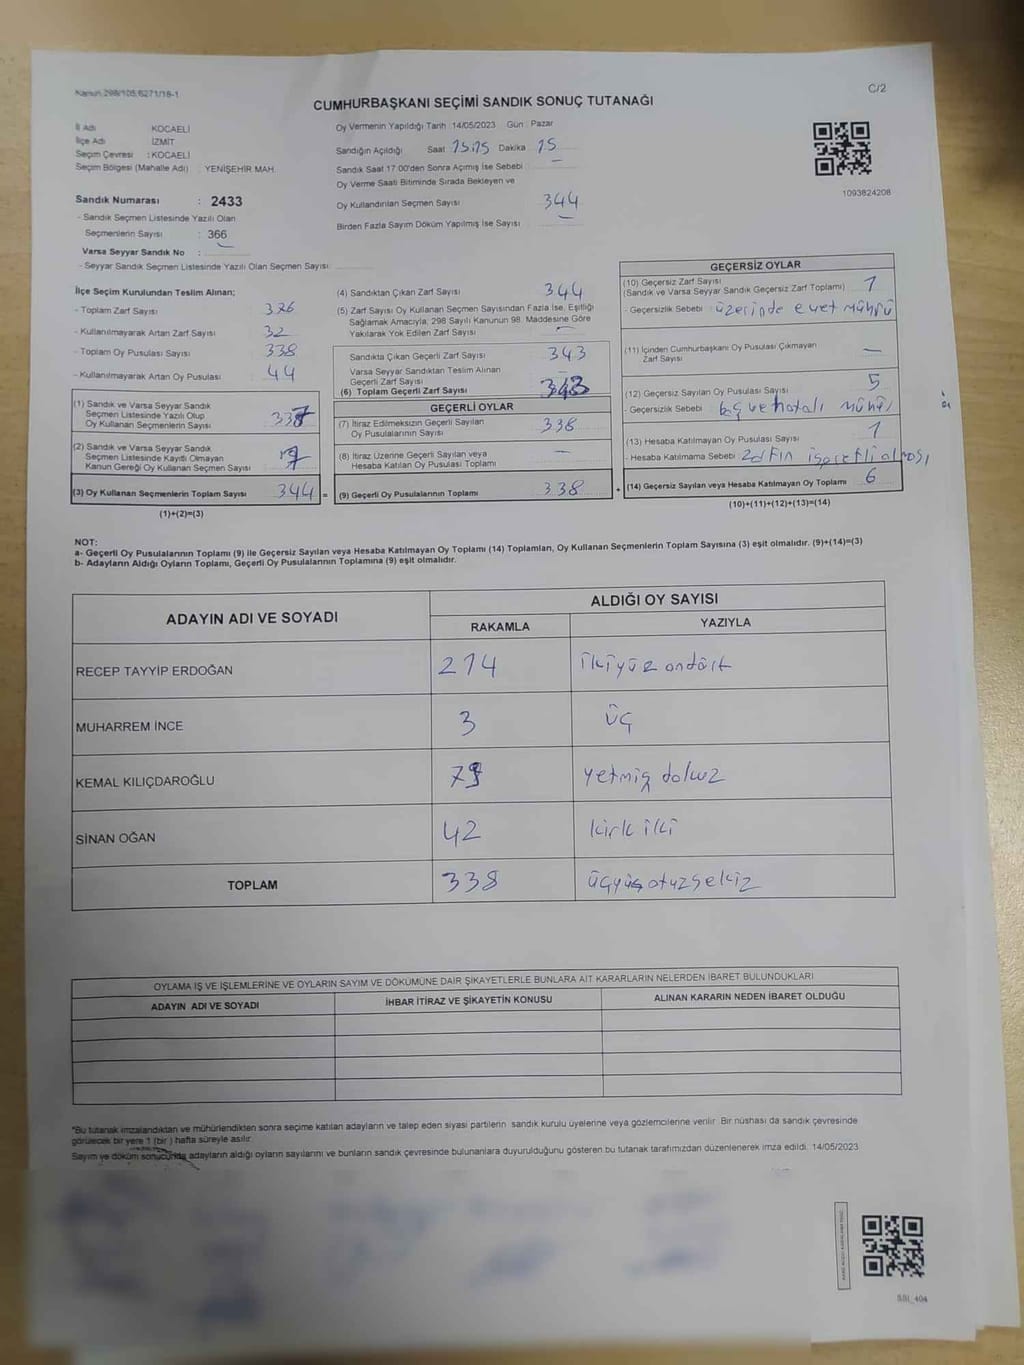 Kanun 298/105;6271/18-1
C/2
CUMHURBAŞKANI SEÇİMİ SANDIK SONUÇ TUTANAĞI
İl Adı KOCAELİ
İlçe Adı İZMİT
Seçim Çevresi : KOCAELİ
Seçim Bölgesi (Mahalle Adı) : YENİŞEHİR MAH.
Sandık Numarası : 2433
- Sandık Seçmen Listesinde Yazılı Olan
Seçmenlerin Sayısı : 366
Varsa Seyyar Sandık No : —
- Seyyar Sandık Seçmen Listesinde Yazılı Olan Seçmen Sayısı:
Oy Vermenin Yapıldığı Tarih 14/05/2023 Gün : Pazar
Sandığın Açıldığı Saat Dakika 15
Sandık Saat 17:00'den Sonra Açımış İse Sebebi —
Oy Verme Saati Bitiminde Sırada Bekleyen ve
Oy Kullandırılan Seçmen Sayısı 344
Birden Fazla Sayım Döküm Yapılmış İse Sayısı —
1093824208
İlçe Seçim Kurulundan Teslim Alınan;
- Toplam Zarf Sayısı
- Kullanılmayarak Artan Zarf Sayısı 32
- Toplam Oy Pusulası Sayısı
- Kullanılmayarak Artan Oy Pusulası 44
(1) Sandık ve Varsa Seyyar Sandık
Seçmen Listesinde Yazılı Olup
Oy Kullanan Seçmenlerin Sayısı 337
(2) Sandık ve Varsa Seyyar Sandık
Seçmen Listesinde Kayıtlı Olmayan
Kanun Gereği Oy Kullanan Seçmen Sayısı 7
(3) Oy Kullanan Seçmenlerin Toplam Sayısı 344 =
(1)+(2)=(3)
(4) Sandıktan Çıkan Zarf Sayısı 344
(5) Zarf Sayısı Oy Kullanan Seçmen Sayısından Fazla İse, Eşitliği
Sağlamak Amacıyla; 298 Sayılı Kanunun 98. Maddesine Göre
Yakılarak Yok Edilen Zarf Sayısı —
Sandıkta Çıkan Geçerli Zarf Sayısı 343
Varsa Seyyar Sandıktan Teslim Alınan
Geçerli Zarf Sayısı —
(6) Toplam Geçerli Zarf Sayısı 343
GEÇERLİ OYLAR
(7) İtiraz Edilmeksizin Geçerli Sayılan
Oy Pusulalarının Sayısı 338
(8) İtiraz Üzerine Geçerli Sayılan veya
Hesaba Katılan Oy Pusulası Toplamı —
(9) Geçerli Oy Pusulalarının Toplamı 338 +
GEÇERSİZ OYLAR
(10) Geçersiz Zarf Sayısı
(Sandık ve Varsa Seyyar Sandık Geçersiz Zarf Toplamı) 1
- Geçersizlik Sebebi : üzerinde evet mührü
(11) İçinden Cumhurbaşkanı Oy Pusulası Çıkmayan
Zarf Sayısı —
(12) Geçersiz Sayılan Oy Pusulası Sayısı 5
Geçersizlik Sebebi : boş ve hatalı mühür
(13) Hesaba Katılmayan Oy Pusulası Sayısı 1
- Hesaba Katılmama Sebebi : işaretli olması
(14) Geçersiz Sayılan veya Hesaba Katılmayan Oy Toplamı 6
(10)+(11)+(12)+(13)=(14)
NOT:
a- Geçerli Oy Pusulalarının Toplamı (9) ile Geçersiz Sayılan veya Hesaba Katılmayan Oy Toplamı (14) Toplamları, Oy Kullanan Seçmenlerin Toplam Sayısına (3) eşit olmalıdır. (9)+(14)=(3)
b- Adayların Aldığı Oyların Toplamı, Geçerli Oy Pusulalarının Toplamına (9) eşit olmalıdır.
ADAYIN ADI VE SOYADI ALDIĞI OY SAYISI
RAKAMLA YAZIYLA
RECEP TAYYİP ERDOĞAN 214 ikiyüz ondört
MUHARREM İNCE 3 üç
KEMAL KILIÇDAROĞLU 79 yetmiş dokuz
SİNAN OĞAN 42 kırk iki
TOPLAM 338 üçyüz otuzsekiz
OYLAMA İŞ VE İŞLEMLERİNE VE OYLARIN SAYIM VE DÖKÜMÜNE DAİR ŞİKAYETLERLE BUNLARA AİT KARARLARIN NELERDEN İBARET BULUNDUKLARI
ADAYIN ADI VE SOYADI İHBAR İTİRAZ VE ŞİKAYETİN KONUSU ALINAN KARARIN NEDEN İBARET OLDUĞU
*Bu tutanak imzalandıktan ve mühürlendikten sonra seçime katılan adayların ve talep eden siyasi partilerin sandık kurulu üyelerine veya gözlemcilerine verilir. Bir nüshası da sandık çevresinde
görülecek bir yere 1 (bir) hafta süreyle asılır.
Sayım ve döküm sonucunda adayların aldığı oyların sayılarını ve bunların sandık çevresinde bulunanlara duyurulduğunu gösteren bu tutanak tarafımızdan düzenlenerek imza edildi. 14/05/2023
SSI_404